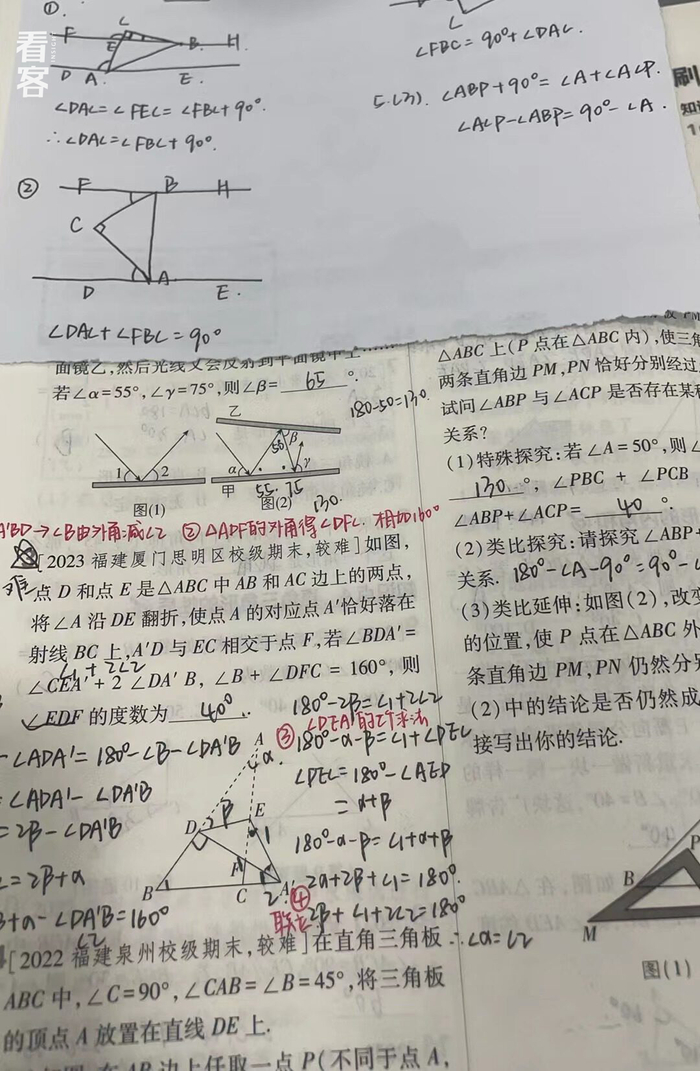 看客
①
L
F E B. H.
D A. E.
∠DAC=∠FEC=∠FBC+90°.
∴∠DAC=∠FBC+90°.
L
∠FBC=90°+∠DAC.
5.(3). ∠ABP+90°=∠A+∠ACP.
∠ACP-∠ABP=90°-∠A.
刷
②
F B H
C
D A E.
∠DAC+∠FBC=90°
面镜乙,然后光线又会反射到平面镜甲上……
若∠α=55°,∠γ=75°,则∠β= 65 °.
180-50=130
乙
1 2
α 50 β γ
甲 55. 75
130.
图(1) 图(2)
A'BD→∠B由外角减∠2 ②△ADF的外角得∠DFC. 相加160°
[2023福建厦门思明区校级期末,较难]如图,
难
点D和点E是△ABC中AB和AC边上的两点,
将∠A沿DE翻折,使点A的对应点A'恰好落在
射线BC上,A'D与EC相交于点F,若∠BDA'=
∠1+2∠2
∠CEA'+2∠DA'B,∠B+∠DFC=160°,则
∠EDF的度数为 40° .
180°-2β=∠1+2∠2
-∠ADA'=180°-∠B-∠DA'B
=∠ADA'-∠DA'B
=2β-∠DA'B
=2β+α
β+α-∠DA'B=160°
∠2
③
180°-α-β=∠1+∠DEC
∠DEC=180°-∠AED
=α+β
180°-α-β=∠1+α+β
2α+2β+∠1=180°.
④
联立 2β+∠1+2∠2=180°
∴∠α=∠2
A
α
D β E
1
F
B C 2 A'
[2022福建泉州校级期末,较难]在直角三角板
ABC中,∠C=90°,∠CAB=∠B=45°,将三角板
的顶点A放置在直线DE上.
在AB边上任取一点P(不同于点A,
△ABC上(P点在△ABC内),使三角
两条直角边PM,PN恰好分别经过
试问∠ABP与∠ACP是否存在某种
关系?
(1)特殊探究:若∠A=50°,则∠
130 °,∠PBC+∠PCB
∠ABP+∠ACP= 40 °.
(2)类比探究:请探究∠ABP+
关系. 180°-∠A-90°=90°-∠
(3)类比延伸:如图(2),改变
的位置,使P点在△ABC外
条直角边PM,PN仍然分别
(2)中的结论是否仍然成
接写出你的结论.
P
B
M
图(1)